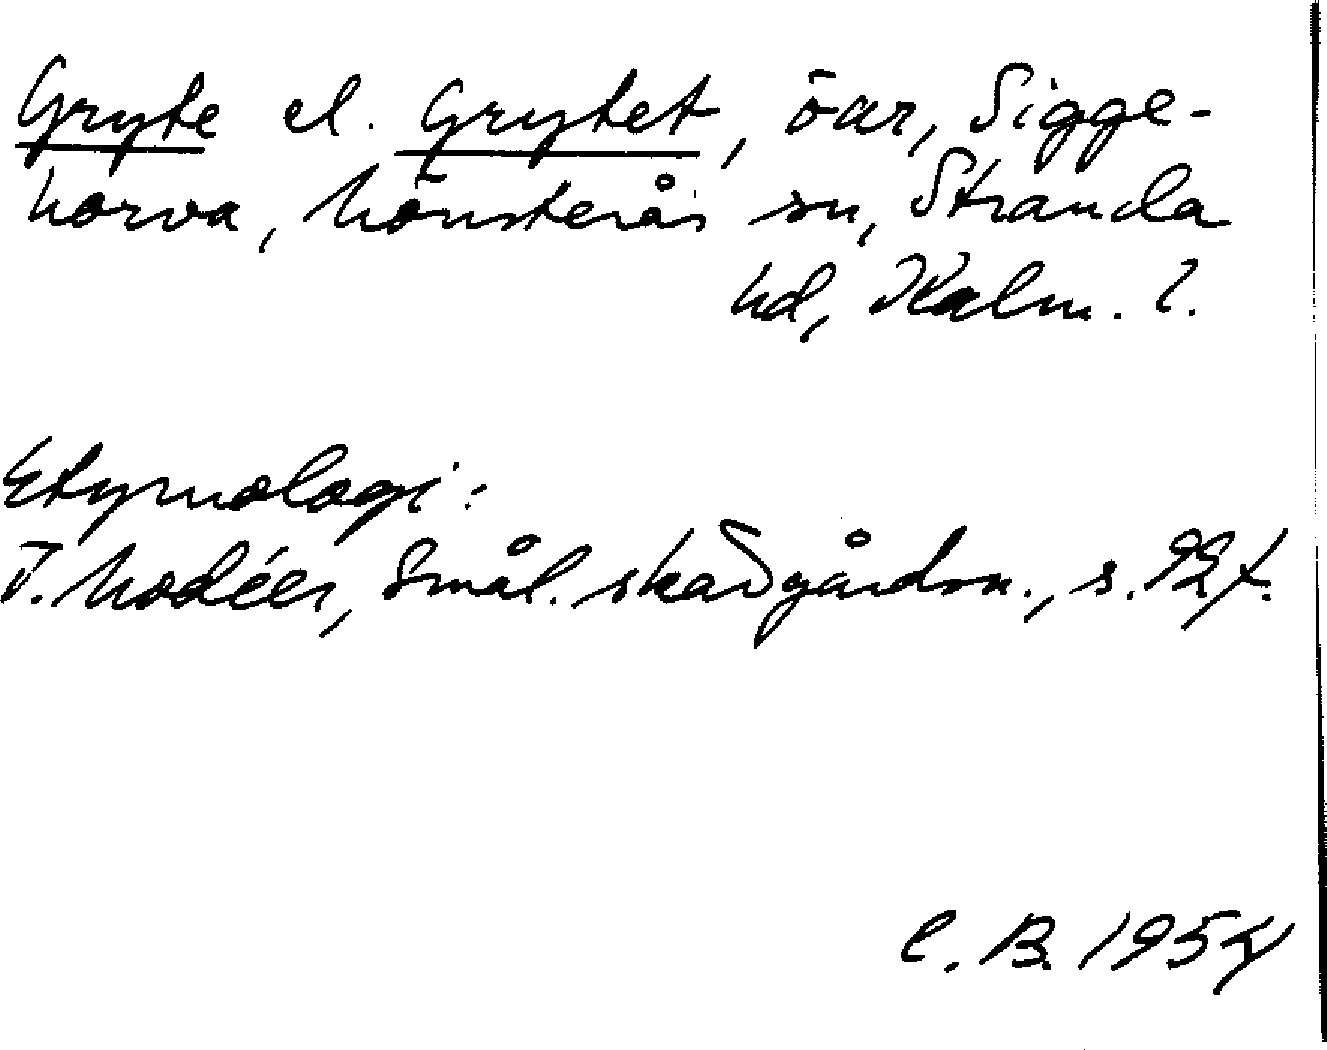 Gryte el. Grytet, öar, Sigge-
horva, Mönsterås sn, Stranda
hd, Kalm. l.
Etymologi:
T. Modéer, Smål. skärgårdsn., s. 92 f.
C. B. 1954